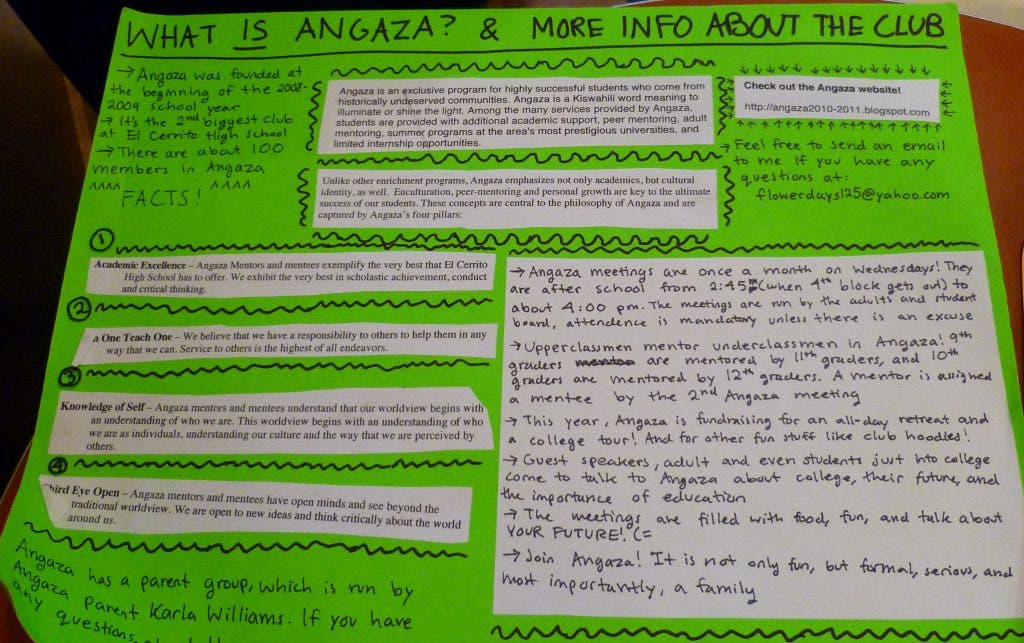 WHAT IS ANGAZA? & MORE INFO ABOUT THE CLUB
→ Angaza was founded at
the beginning of the 2008-
2009 school year
→ It's the 2nd biggest club
at El Cerrito High School
→ There are about 100
members in Angaza
^^^^ ^^^^
FACTS!
Angaza is an exclusive program for highly successful students who come from
historically undeserved communities. Angaza is a Kiswahili word meaning to
illuminate or shine the light. Among the many services provided by Angaza,
students are provided with additional academic support, peer mentoring, adult
mentoring, summer programs at the area's most prestigious universities, and
limited internship opportunities.
Unlike other enrichment programs, Angaza emphasizes not only academics, but cultural
identity, as well. Enculturation, peer-mentoring and personal growth are key to the ultimate
success of our students. These concepts are central to the philosophy of Angaza and are
captured by Angaza's four pillars:
Check out the Angaza website!
http://angaza2010-2011.blogspot.com
→ Feel free to send an email
to me if you have any
questions at:
flowerdays125@yahoo.com
1
Academic Excellence – Angaza Mentors and mentees exemplify the very best that El Cerrito
High School has to offer. We exhibit the very best in scholastic achievement, conduct
and critical thinking.
2
One Teach One – We believe that we have a responsibility to others to help them in any
way that we can. Service to others is the highest of all endeavors.
3
Knowledge of Self – Angaza mentors and mentees understand that our worldview begins with
an understanding of who we are. This worldview begins with an understanding of who
we are as individuals, understanding our culture and the way that we are perceived by
others.
4
Third Eye Open – Angaza mentors and mentees have open minds and see beyond the
traditional worldview. We are open to new ideas and think critically about the world
around us.
Angaza has a parent group, which is run by
Angaza parent Karla Williams. If you have
any questions
→ Angaza meetings are once a month on Wednesdays! They
are after school from 2:45pm (when 4th block gets out) to
about 4:00 pm. The meetings are run by the adults and student
board, attendence is mandatory unless there is an excuse
→ Upperclassmen mentor underclassmen in Angaza! 9th
graders are mentored by 11th graders, and 10th
graders are mentored by 12th graders. A mentor is assigned
a mentee by the 2nd Angaza meeting
→ This year, Angaza is fundraising for an all-day retreat and
a college tour! And for other fun stuff like club hoodies!
→ Guest speakers, adult and even students just into college
come to talk to Angaza about college, their future, and
the importance of education
→ The meetings are filled with food, fun, and talk about
YOUR FUTURE! (=
→ Join Angaza! It is not only fun, but formal, serious, and
most importantly, a family